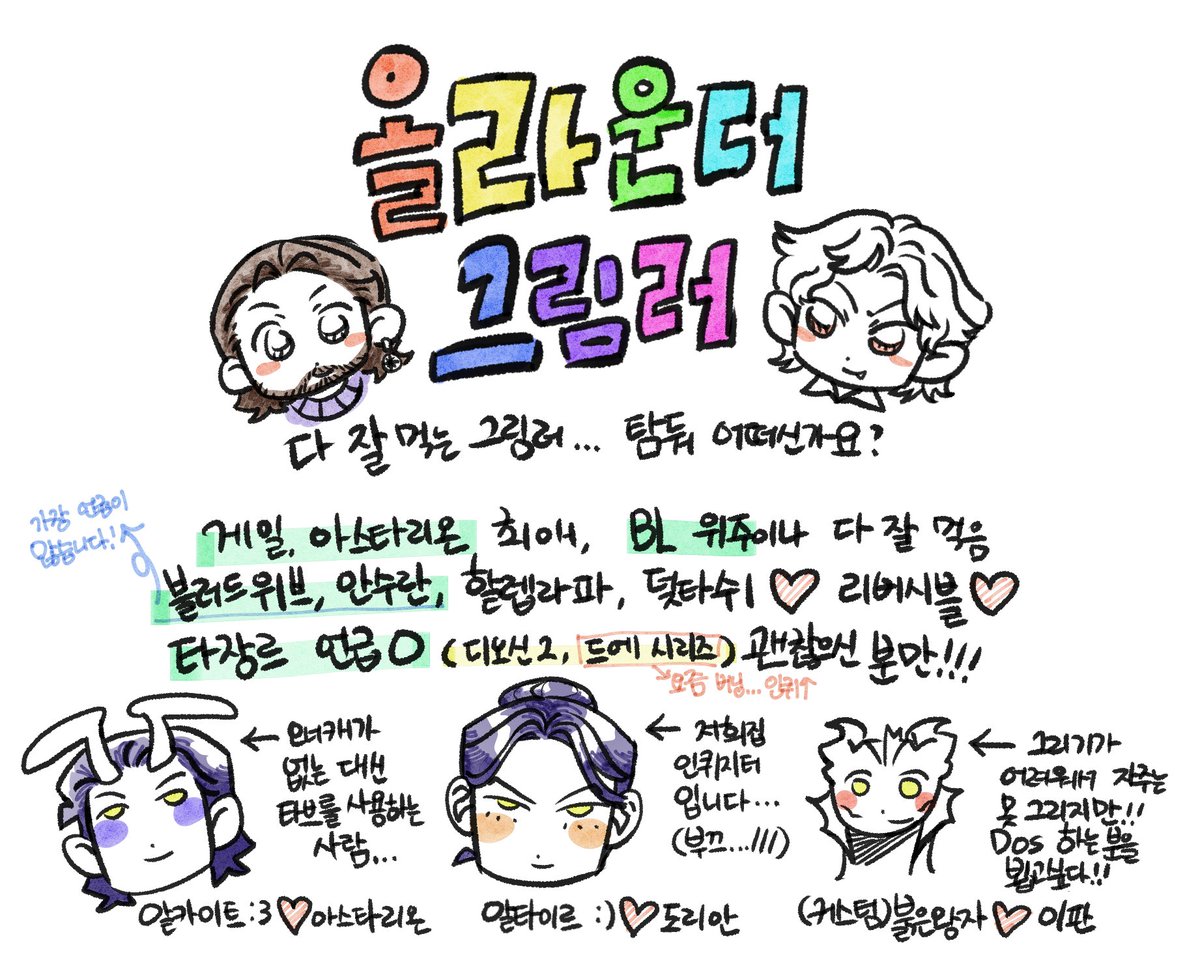 올라운더
그림러
다 잘 먹는 그림러... 탐둬 어떠신가요?
가장 언급이
많습니다!
게일, 아스타리온 최애, BL 위주이나 다 잘 먹음
블러드위브, 안수란, 할렙라파, 덫타쉬 ♡ 리버시블 ♡
타장르 언급 O (디오신2, 드에 시리즈) 괜찮으신 분만!!!
요즘 버닝... 인퀴↑
← 오너캐가
없는 대신
타브를 사용하는
사람...
← 저희집
인퀴지터
입니다...
(부끄...///)
← 그리기가
어려워서 자주는
못 그리지만!!
Dos 하는 분을
뵙고싶다!!
알카이트 :3 ♡ 아스타리온
알타이르 :) ♡ 도리안
(커스텀)붉은왕자 ♡ 이판